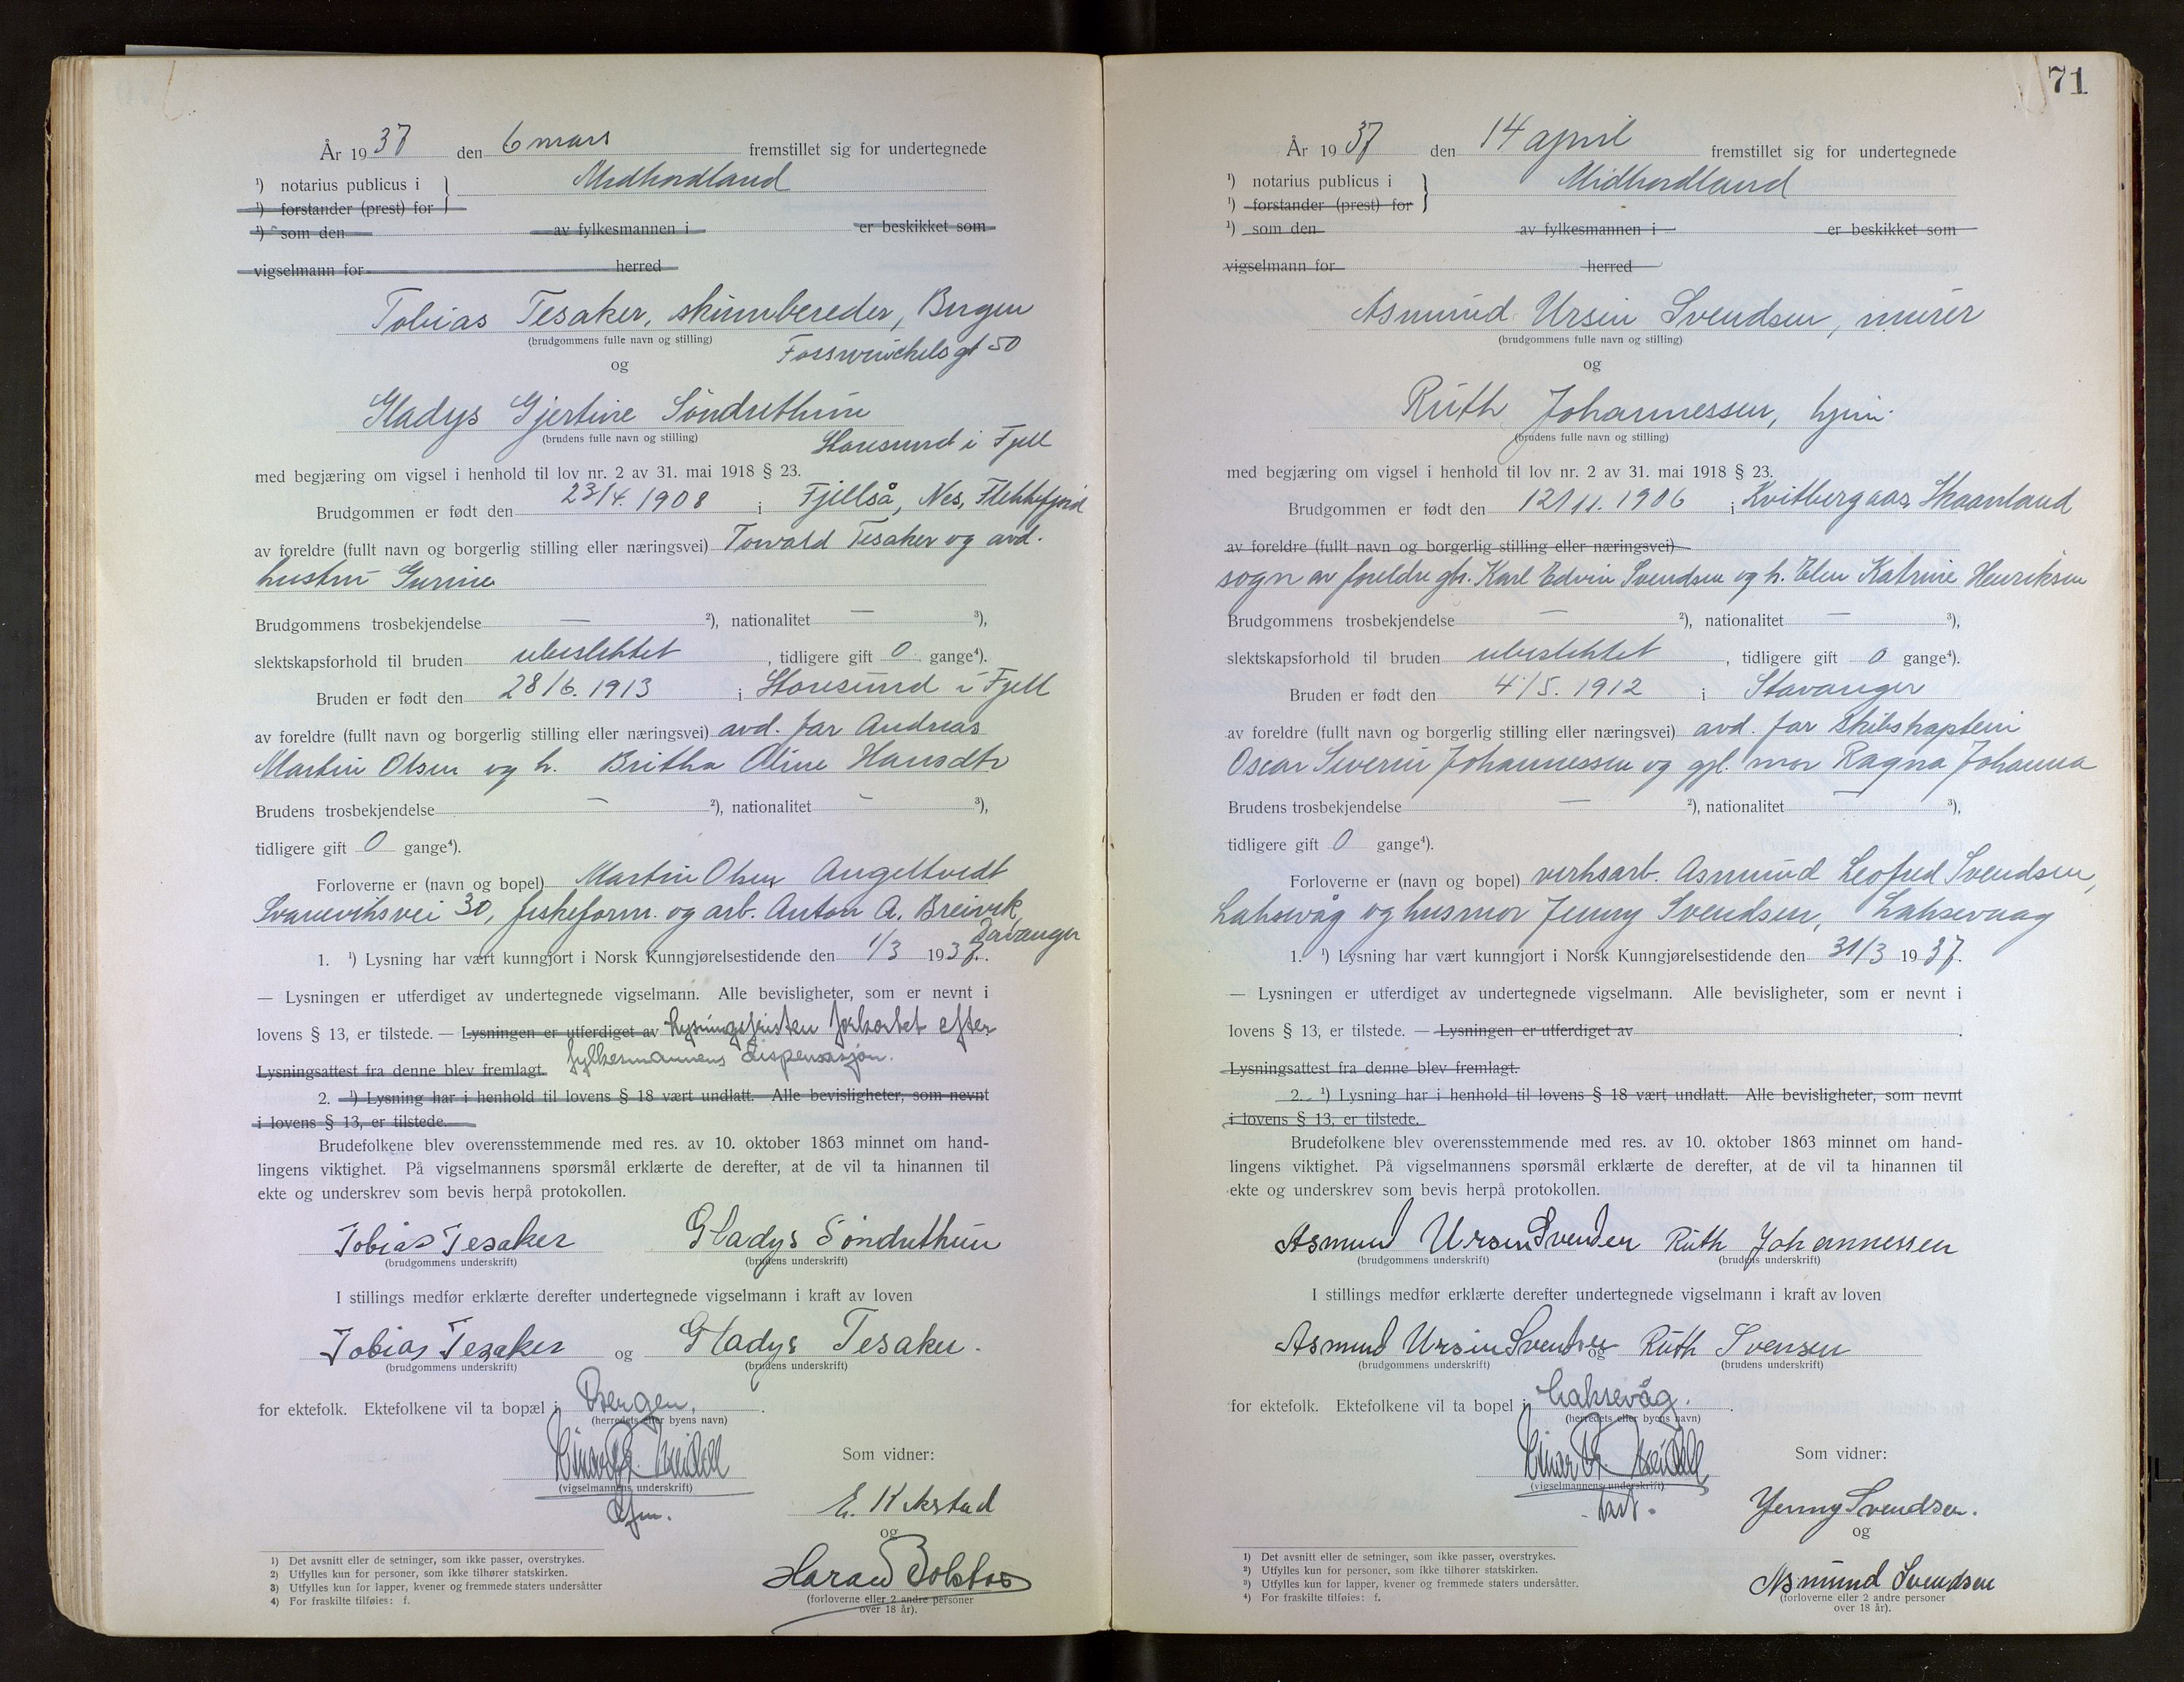 År 1937 den 6 mars fremstillet sig for undertegnede
¹) notarius publicus i } Midhordland
¹) forstander (prest) for
¹) som den av fylkesmannen i er beskikket som
vigselmann for herred
Tobias Tesaker, skinnbereder, Bergen
(brudgommens fulle navn og stilling) Fosswinckelsgt 50
og
Gladys Gjertine Söndrethun
(brudens fulle navn og stilling) Storesund i Fjell
med begjæring om vigsel i henhold til lov nr. 2 av 31. mai 1918 § 23.
Brudgommen er født den 23/4. 1908 i Fjellså, Nes, Flekkefjord
av foreldre (fullt navn og borgerlig stilling eller næringsvei) Torvald Tesaker og avd.
hustru Gurine
Brudgommens trosbekjendelse — ²), nationalitet — ³),
slektskapsforhold til bruden ubeslektet, tidligere gift 0 gange⁴).
Bruden er født den 28/6. 1913 i Storesund i Fjell
av foreldre (fullt navn og borgerlig stilling eller næringsvei) avd. far Andreas
Martin Olsen og h. Britha Oline Hansdtr
Brudens trosbekjendelse — ²), nationalitet - ³),
tidligere gift 0 gange⁴).
Forloverne er (navn og bopel) Martin Olsen Angeltvedt
Svaneviksvei 30, fiskeform. og arb. Anton A. Breivik,
1. ¹) Lysning har vært kunngjort i Norsk Kunngjørelsestidende den 1/3 1937.
— Lysningen er utferdiget av undertegnede vigselmann. Alle bevisligheter, som er nevnt i
lovens § 13, er tilstede. — Lysningen er utferdiget av Lysningsfristen forkortet efter
Lysningsattest fra denne blev fremlagt. fylkesmannens dispensasjon.
2. ¹) Lysning har i henhold til lovens § 18 vært undlatt. Alle bevisligheter, som nevnt
i lovens § 13, er tilstede.
Brudefolkene blev overensstemmende med res. av 10. oktober 1863 minnet om hand-
lingens viktighet. På vigselmannens spørsmål erklærte de derefter, at de vil ta hinannen til
ekte og underskrev som bevis herpå protokollen.
Tobias Tesaker Gladys Söndrethun
(brudgommens underskrift) (brudens underskrift)
I stillings medfør erklærte derefter undertegnede vigselmann i kraft av loven
Tobias Tesaker og Gladys Tesaker.
(brudgommens underskrift) (brudens underskrift)
for ektefolk. Ektefolkene vil ta bopæl i Bergen.
(herredets eller byens navn)
Som vidner:
(vigselmannens underskrift)
og
(forloverne eller 2 andre personer
over 18 år).
1) Det avsnitt eller de setninger, som ikke passer, overstrykes.
2) Utfylles kun for personer, som ikke tilhører statskirken.
3) Utfylles kun for lapper, kvener og fremmede staters undersåtter
4) For fraskilte tilføies: f.
71
År 1937 den 14 april fremstillet sig for undertegnede
¹) notarius publicus i } Midhordland
¹) forstander (prest) for
¹) som den av fylkesmannen i er beskikket som
vigselmann for herred
Asmund Ursin Svendsen, murer
(brudgommens fulle navn og stilling)
og
Ruth Johannessen, hjm.
(brudens fulle navn og stilling)
med begjæring om vigsel i henhold til lov nr. 2 av 31. mai 1918 § 23.
Brudgommen er født den 12/11. 1906 i Kvitbergaas, Skaanland
av foreldre (fullt navn og borgerlig stilling eller næringsvei)
sogn av foreldre gbr. Karl Edvin Svendsen og h. Elen Katrine Henriksen
Brudgommens trosbekjendelse — ²), nationalitet — ³),
slektskapsforhold til bruden ubeslektet, tidligere gift 0 gange⁴).
Bruden er født den 4/5. 1912 i Stavanger
av foreldre (fullt navn og borgerlig stilling eller næringsvei) avd. far skibskaptein
Oscar Severin Johannessen og gjl. mor Ragna Johanna
Brudens trosbekjendelse — ²), nationalitet — ³),
tidligere gift 0 gange⁴).
Forloverne er (navn og bopel) verksarb. Asmund Leofred Svendsen,
Laksevåg og husmor Jenny Svendsen, Laksevaag
1. ¹) Lysning har vært kunngjort i Norsk Kunngjørelsestidende den 31/3 1937.
— Lysningen er utferdiget av undertegnede vigselmann. Alle bevisligheter, som er nevnt i
lovens § 13, er tilstede. — Lysningen er utferdiget av
Lysningsattest fra denne blev fremlagt.
2. ¹) Lysning har i henhold til lovens § 18 vært undlatt. Alle bevisligheter, som nevnt
i lovens § 13, er tilstede.
Brudefolkene blev overensstemmende med res. av 10. oktober 1863 minnet om hand-
lingens viktighet. På vigselmannens spørsmål erklærte de derefter, at de vil ta hinannen til
ekte og underskrev som bevis herpå protokollen.
Asmund Ursin Svendsen Ruth Johannessen
(brudgommens underskrift) (brudens underskrift)
I stillings medfør erklærte derefter undertegnede vigselmann i kraft av loven
Asmund Ursin Svendsen og Ruth Svensen
(brudgommens underskrift) (brudens underskrift)
for ektefolk. Ektefolkene vil ta bopel i Laksevåg.
(herredets eller byens navn)
Som vidner:
(vigselmannens underskrift)
Jenny Svendsen.
og
Asmund Svendsen
(forloverne eller 2 andre personer
over 18 år).
1) Det avsnitt eller de setninger, som ikke passer, overstrykes.
2) Utfylles kun for personer, som ikke tilhører statskirken.
3) Utfylles kun for lapper, kvener og fremmede staters undersåtter.
4) For fraskilte tilføies: f.